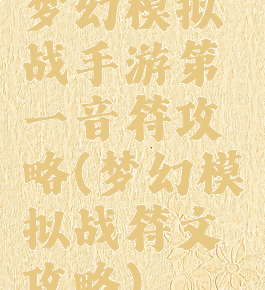 梦幻模拟
战手游第
一音符攻
略(梦幻模
拟战符文
攻略)